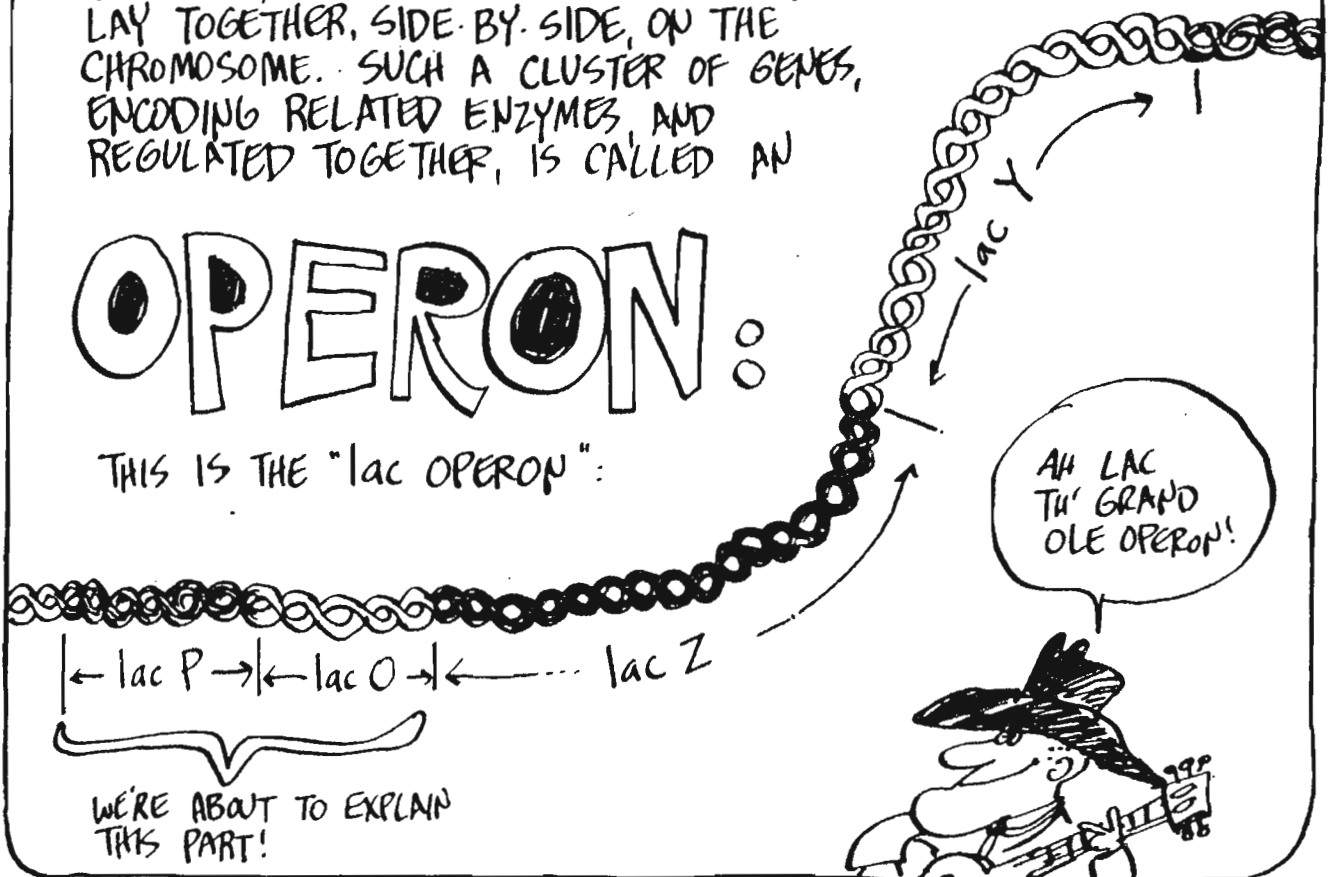 LAY TOGETHER, SIDE-BY-SIDE, ON THE
CHROMOSOME. SUCH A CLUSTER OF GENES,
ENCODING RELATED ENZYMES, AND
REGULATED TOGETHER, IS CALLED AN
OPERON:
THIS IS THE "lac OPERON":
lac Y
AH LAC
TH' GRAND
OLE OPERON!
lac P
lac O
lac Z
WE'RE ABOUT TO EXPLAIN
THIS PART!